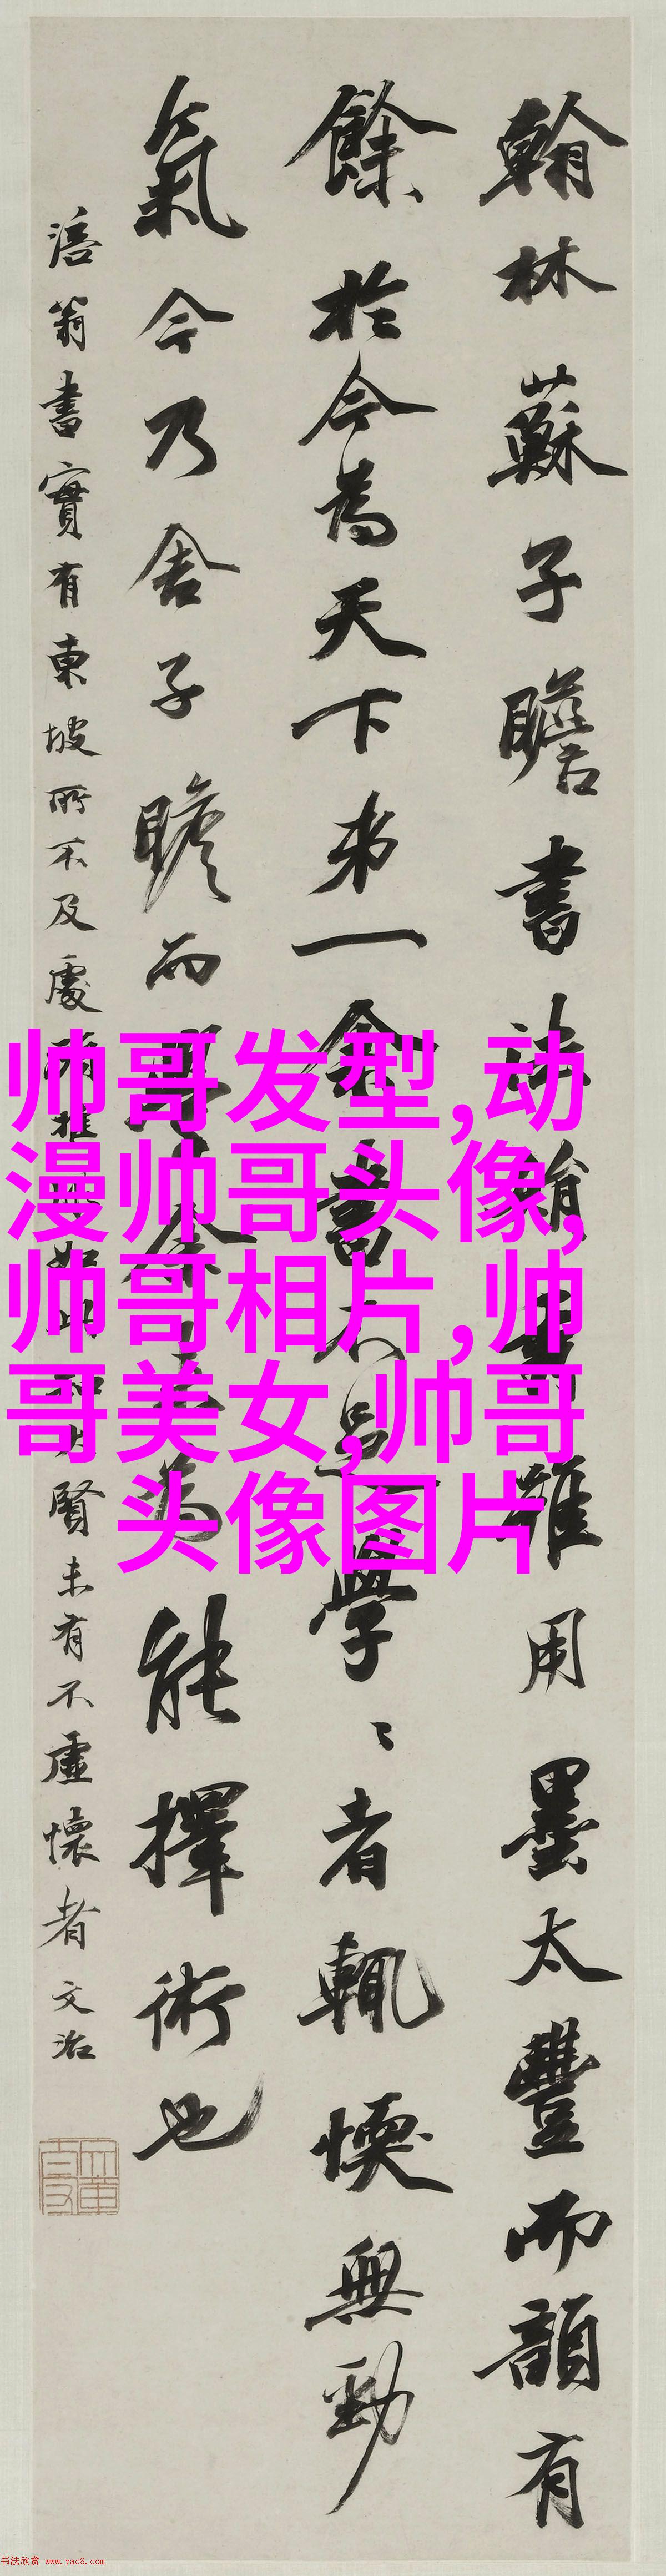 翰林蘇子瞻書法翰書雖用墨太豐而韻有
餘於今為天下第一余書不足學學者輒愞無勁
氣今乃舍子瞻而學余未為能擇術也
涪翁書實有東坡所不及處
賢未有不虛懷者文治
帅哥发型,动
漫帅哥头像,
帅哥相片,帅
哥美女,帅哥
头像图片
书法欣赏 www.yac8.com